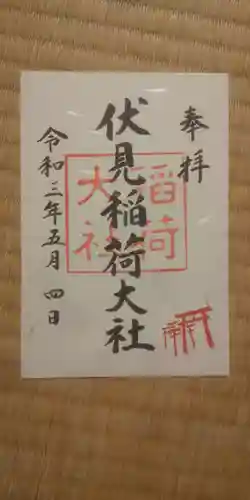 奉拝
伏見稲荷大社
稲荷
大社
令和三年五月四日